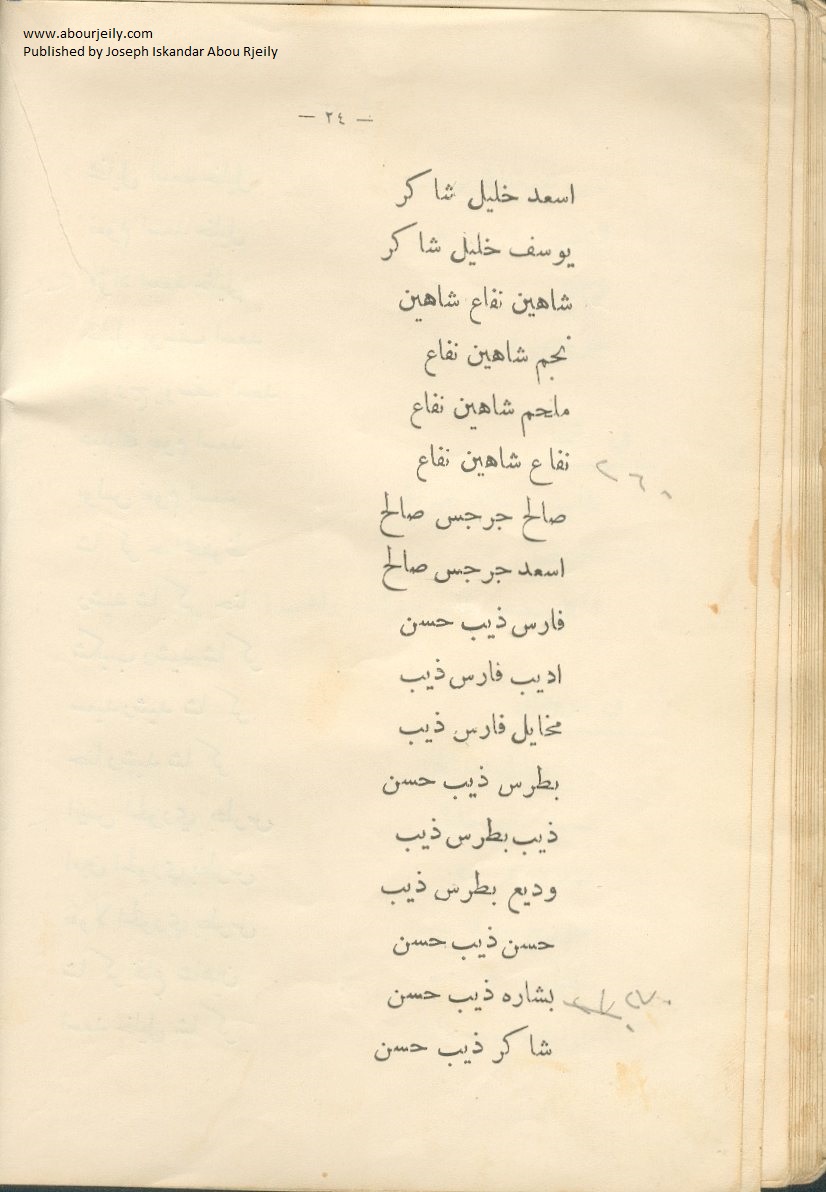 www.abourjeily.com
Published by Joseph Iskandar Abou Rjeily
— ٢٤ —
اسعد خليل شاكر
يوسف خليل شاكر
شاهين نفاع شاهين
نجم شاهين نفاع
ملحم شاهين نفاع
نفاع شاهين نفاع
صالح جرجس صالح
اسعد جرجس صالح
فارس ذيب حسن
اديب فارس ذيب
مخايل فارس ذيب
بطرس ذيب حسن
ذيب بطرس ذيب
وديع بطرس ذيب
حسن ذيب حسن
بشاره ذيب حسن
شاكر ذيب حسن